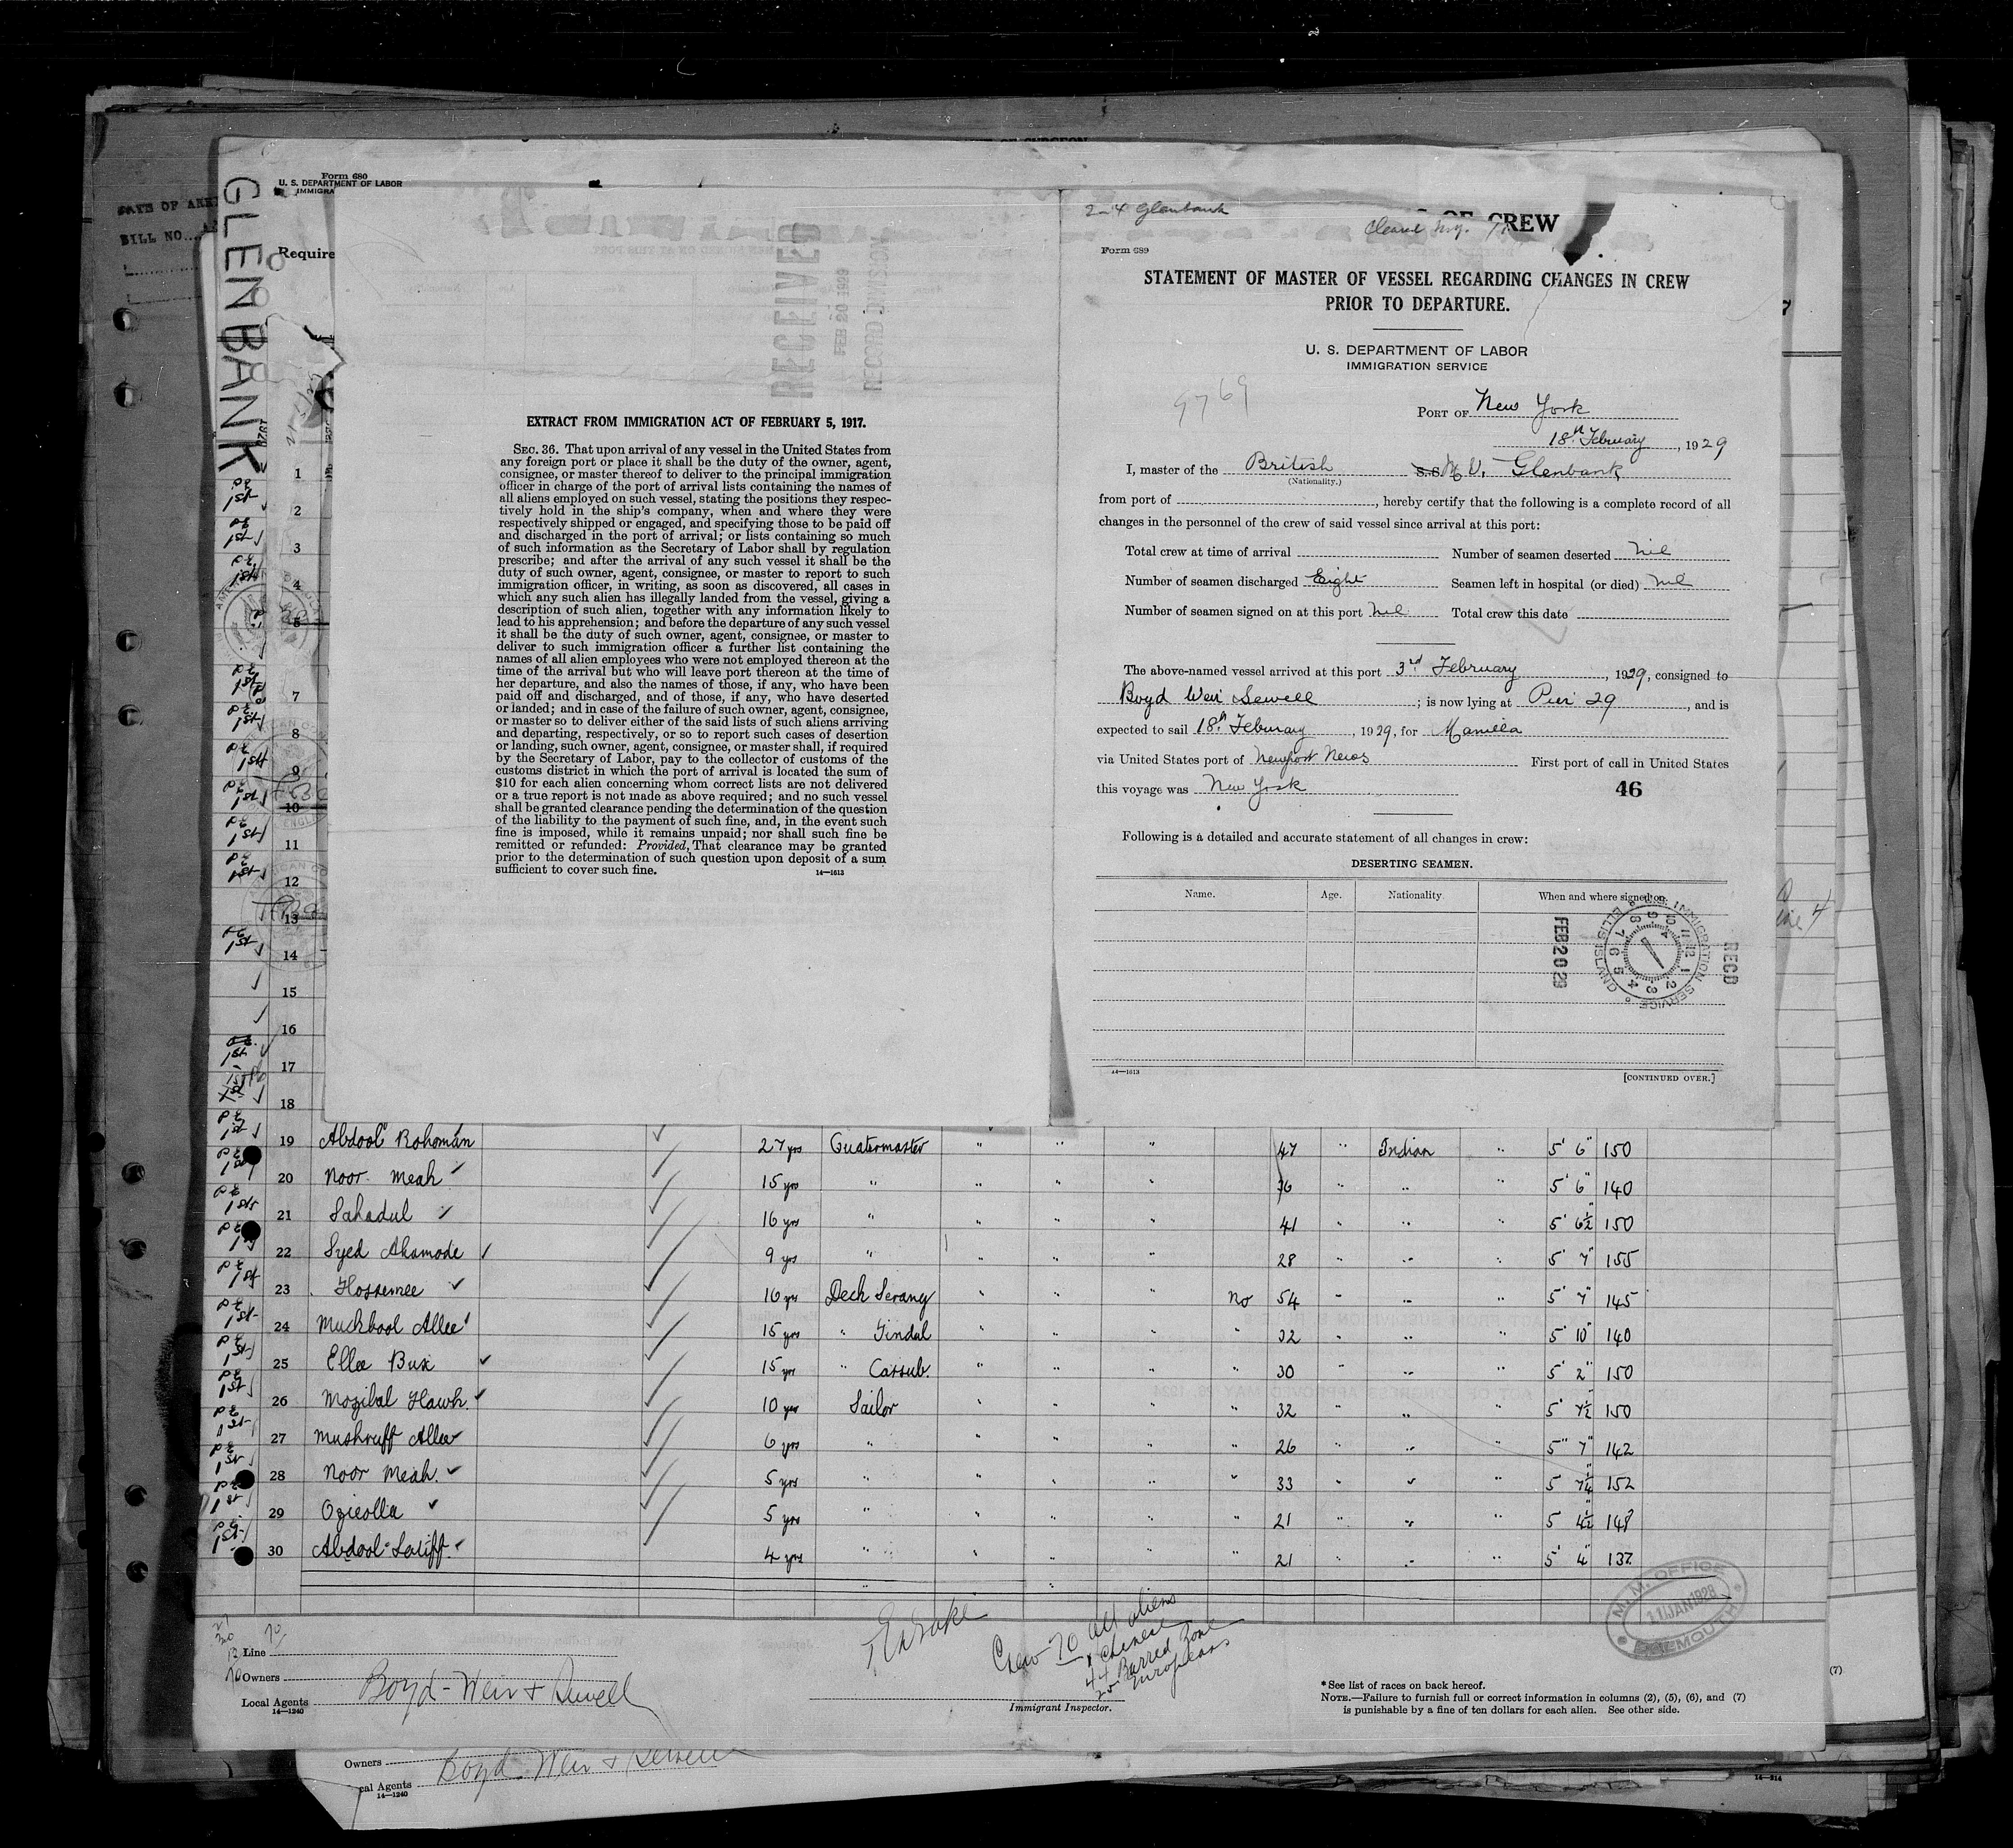 GLENBANK
Form 680
U. S. DEPARTMENT OF LABOR
IMMIGRA
DATE OF
BILL NO.
Require
RECEIVED
FEB 20 1929
RECORD DIVISION
EXTRACT FROM IMMIGRATION ACT OF FEBRUARY 5, 1917.
SEC. 36. That upon arrival of any vessel in the United States from
any foreign port or place it shall be the duty of the owner, agent,
consignee, or master thereof to deliver to the principal immigration
officer in charge of the port of arrival lists containing the names of
all aliens employed on such vessel, stating the positions they respec-
tively hold in the ship's company, when and where they were
respectively shipped or engaged, and specifying those to be paid off
and discharged in the port of arrival; or lists containing so much
of such information as the Secretary of Labor shall by regulation
prescribe; and after the arrival of any such vessel it shall be the
duty of such owner, agent, consignee, or master to report to such
immigration officer, in writing, as soon as discovered, all cases in
which any such alien has illegally landed from the vessel, giving a
description of such alien, together with any information likely to
lead to his apprehension; and before the departure of any such vessel
it shall be the duty of such owner, agent, consignee, or master to
deliver to such immigration officer a further list containing the
names of all alien employees who were not employed thereon at the
time of the arrival but who will leave port thereon at the time of
her departure, and also the names of those, if any, who have been
paid off and discharged, and of those, if any, who have deserted
or landed; and in case of the failure of such owner, agent, consignee,
or master so to deliver either of the said lists of such aliens arriving
and departing, respectively, or so to report such cases of desertion
or landing, such owner, agent, consignee, or master shall, if required
by the Secretary of Labor, pay to the collector of customs of the
customs district in which the port of arrival is located the sum of
$10 for each alien concerning whom correct lists are not delivered
or a true report is not made as above required; and no such vessel
shall be granted clearance pending the determination of the question
of the liability to the payment of such fine, and, in the event such
fine is imposed, while it remains unpaid; nor shall such fine be
remitted or refunded: Provided, That clearance may be granted
prior to the determination of such question upon deposit of a sum
sufficient to cover such fine.
14—1613
2-4 Glenbank
OF CREW
Form 689
STATEMENT OF MASTER OF VESSEL REGARDING CHANGES IN CREW
PRIOR TO DEPARTURE.
U. S. DEPARTMENT OF LABOR
IMMIGRATION SERVICE
9769
PORT OF New York
18th February, 1929
I, master of the British S.S. M.V. Glenbank
(Nationality.)
from port of , hereby certify that the following is a complete record of all
changes in the personnel of the crew of said vessel since arrival at this port:
Total crew at time of arrival Number of seamen deserted nil
Number of seamen discharged Eight Seamen left in hospital (or died) nil
Number of seamen signed on at this port nil Total crew this date
The above-named vessel arrived at this port 3rd February, 1929, consigned to
Boyd Weir Sewell ; is now lying at Pier 29 , and is
expected to sail 18th Feburary, 1929, for Manilla
via United States port of Newport News First port of call in United States
this voyage was New York
46
Following is a detailed and accurate statement of all changes in crew:
DESERTING SEAMEN.
Name. Age. Nationality When and where signed on
FEB 20 29
U.S. IMMIGRATION SERVICE ELLIS ISLAND
RECD
14—1613
[CONTINUED OVER.]
1
2
3
4
5
7
8
9
10
11
12
13
14
15
16
17
18
19 Abdool Rohoman 27 yrs Quatermaster " " " 47 " Indian " 5' 6" 150
20 Noor Meah 15 yrs " " " " 36 " " " 5' 6" 140
21 Sahadul 16 yrs " " " " 41 " " " 5' 6½" 150
22 Syed Ahamode 9 yrs " " " " 28 " " " 5' 7" 155
23 Hossemee 16 yrs Deck Serang " " " no 54 " " " 5' 7" 145
24 Muckbool Allee 15 yrs " Tindal " " " " 32 " " " 5' 10" 140
25 Ellee Bux 15 yrs " Cassub. " " " " 30 " " " 5' 2" 150
26 Mozibal Hawk. 10 yrs Sailor " " " " 32 " " " 5' 7½" 150
27 Mushruff Allee 6 yrs " " " " " 26 " " " 5" 7" 142
28 Noor Meah. 5 yrs " " " " " 33 " " " 5 7¼" 152
29 Ozieolla 5 yrs " " " " " 21 " " " 5 4½" 148
30 Abdool Latiff. 4 yrs " " " " " 21 " " " 5' 4" 137
M. M. OFFICE
11 JAN 1928
Line 70
Owners
Local Agents Boyd-Weir & Sewell
14—1240
Crew 70 all aliens
1 Chinese
44 Barred Zone
25 Europeans
Immigrant Inspector.
*See list of races on back hereof.
NOTE.—Failure to furnish full or correct information in columns (2), (5), (6), and (7)
is punishable by a fine of ten dollars for each alien. See other side.
(7)
Owners
cal Agents Boyd Weir & Sewell
14—1240
14—514